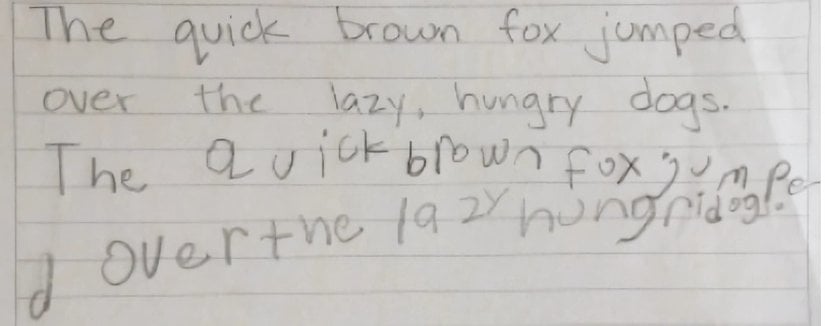 The quick brown fox jumped
over the lazy, hungry dogs.
The quick brown fox jumpe
d over the lazy hungri dog.